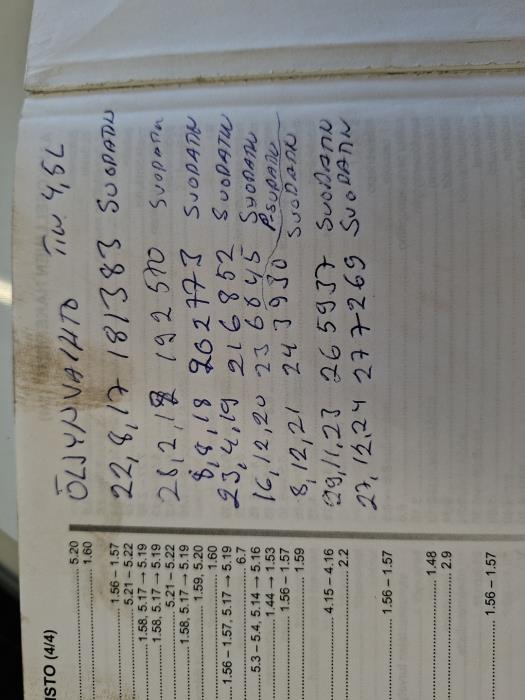 ÖLJYNVAIHTO TIM 4,5L
22,8,17 181383 SUODATIN
28,2,18 192570 SUODATIN
8,8,18 202773 SUODATIN
23,4,19 216852 SUODATIN
16,12,20 236845 SUODATIN
P.SUODATIN
8,12,21 243930 SUODATIN
29,11,23 265937 SUODATIN
27,12,24 277269 SUODATIN
ISTO (4/4)
5.20
1.60
1.56 – 1.57
5.21 – 5.22
1.58, 5.17 → 5.19
1.58, 5.17 → 5.19
5.21 – 5.22
1.58, 5.17 → 5.19
1.59, 5.20
1.60
1.56 – 1.57, 5.17 → 5.19
6.7
5.3 – 5.4, 5.14 → 5.16
1.44 → 1.53
1.56 – 1.57
1.59
4.15 – 4.16
2.2
1.56 – 1.57
1.48
2.9
1.56 – 1.57